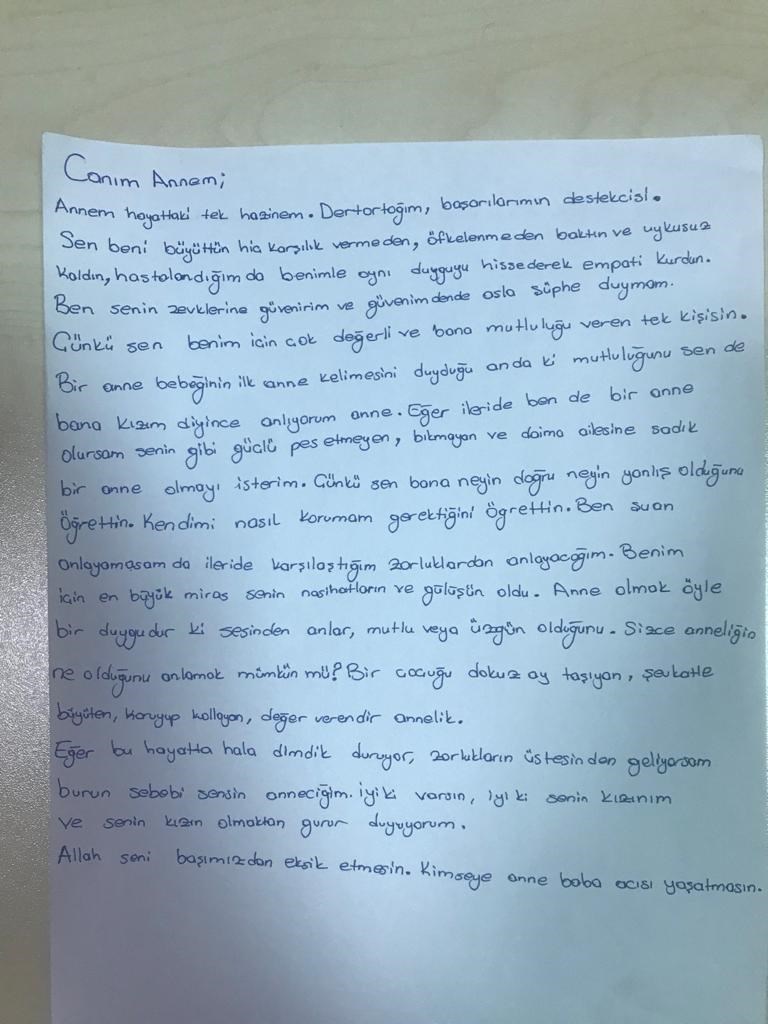 Canım Annem;
Annem hayattaki tek hazinem. Dertortağım, başarılarımın destekcisi.
Sen beni büyüttün hia karşılık vermeden, öfkelenmeden baktın ve uykusuz
kaldın, hastalandığım da benimle aynı duyguyu hissederek empati kurdun.
Ben senin zevklerine güvenirim ve güvenimdende asla süphe duymam.
Günkü sen benim icin cok değerli ve bana mutluluğu veren tek kişisin.
Bir anne bebeğinin ilk anne kelimesini duyduğu anda ki mutluluğunu sen de
bana kızım diyince anlıyorum anne. Eğer ileride ben de bir anne
olursam senin gibi güclü pes etmeyen, bıkmayan ve daima ailesine sadık
bir anne olmayı isterim. Günkü sen bana neyin doğru neyin yanlış olduğunu
öğrettin. Kendimi nasıl korumam gerektiğini öğrettin. Ben şuan
anlayamasam da ileride karşılaştığım zorluklardan anlayacağım. Benim
için en büyük miras senin nasihatların ve gülüşün oldu. Anne olmak öyle
bir duygudur ki sesinden anlar, mutlu veya üzgün olduğunu. Sizce anneliğin
ne olduğunu anlamak mümkün mü? Bir cocuğu dokuz ay taşıyan, şevkatle
büyüten, koruyup kollayan, değer verendir annelik.
Eğer bu hayatta hala dimdik duruyor, zorlukların üstesinden geliyorsam
burun sebebi sensin anneciğim. iyi ki varsın, iyi ki senin kızınım
ve senin kızın olmaktan gurur duyuyorum.
Allah seni başımızdan eksik etmesin. Kimseye anne baba acısı yaşatmasın.